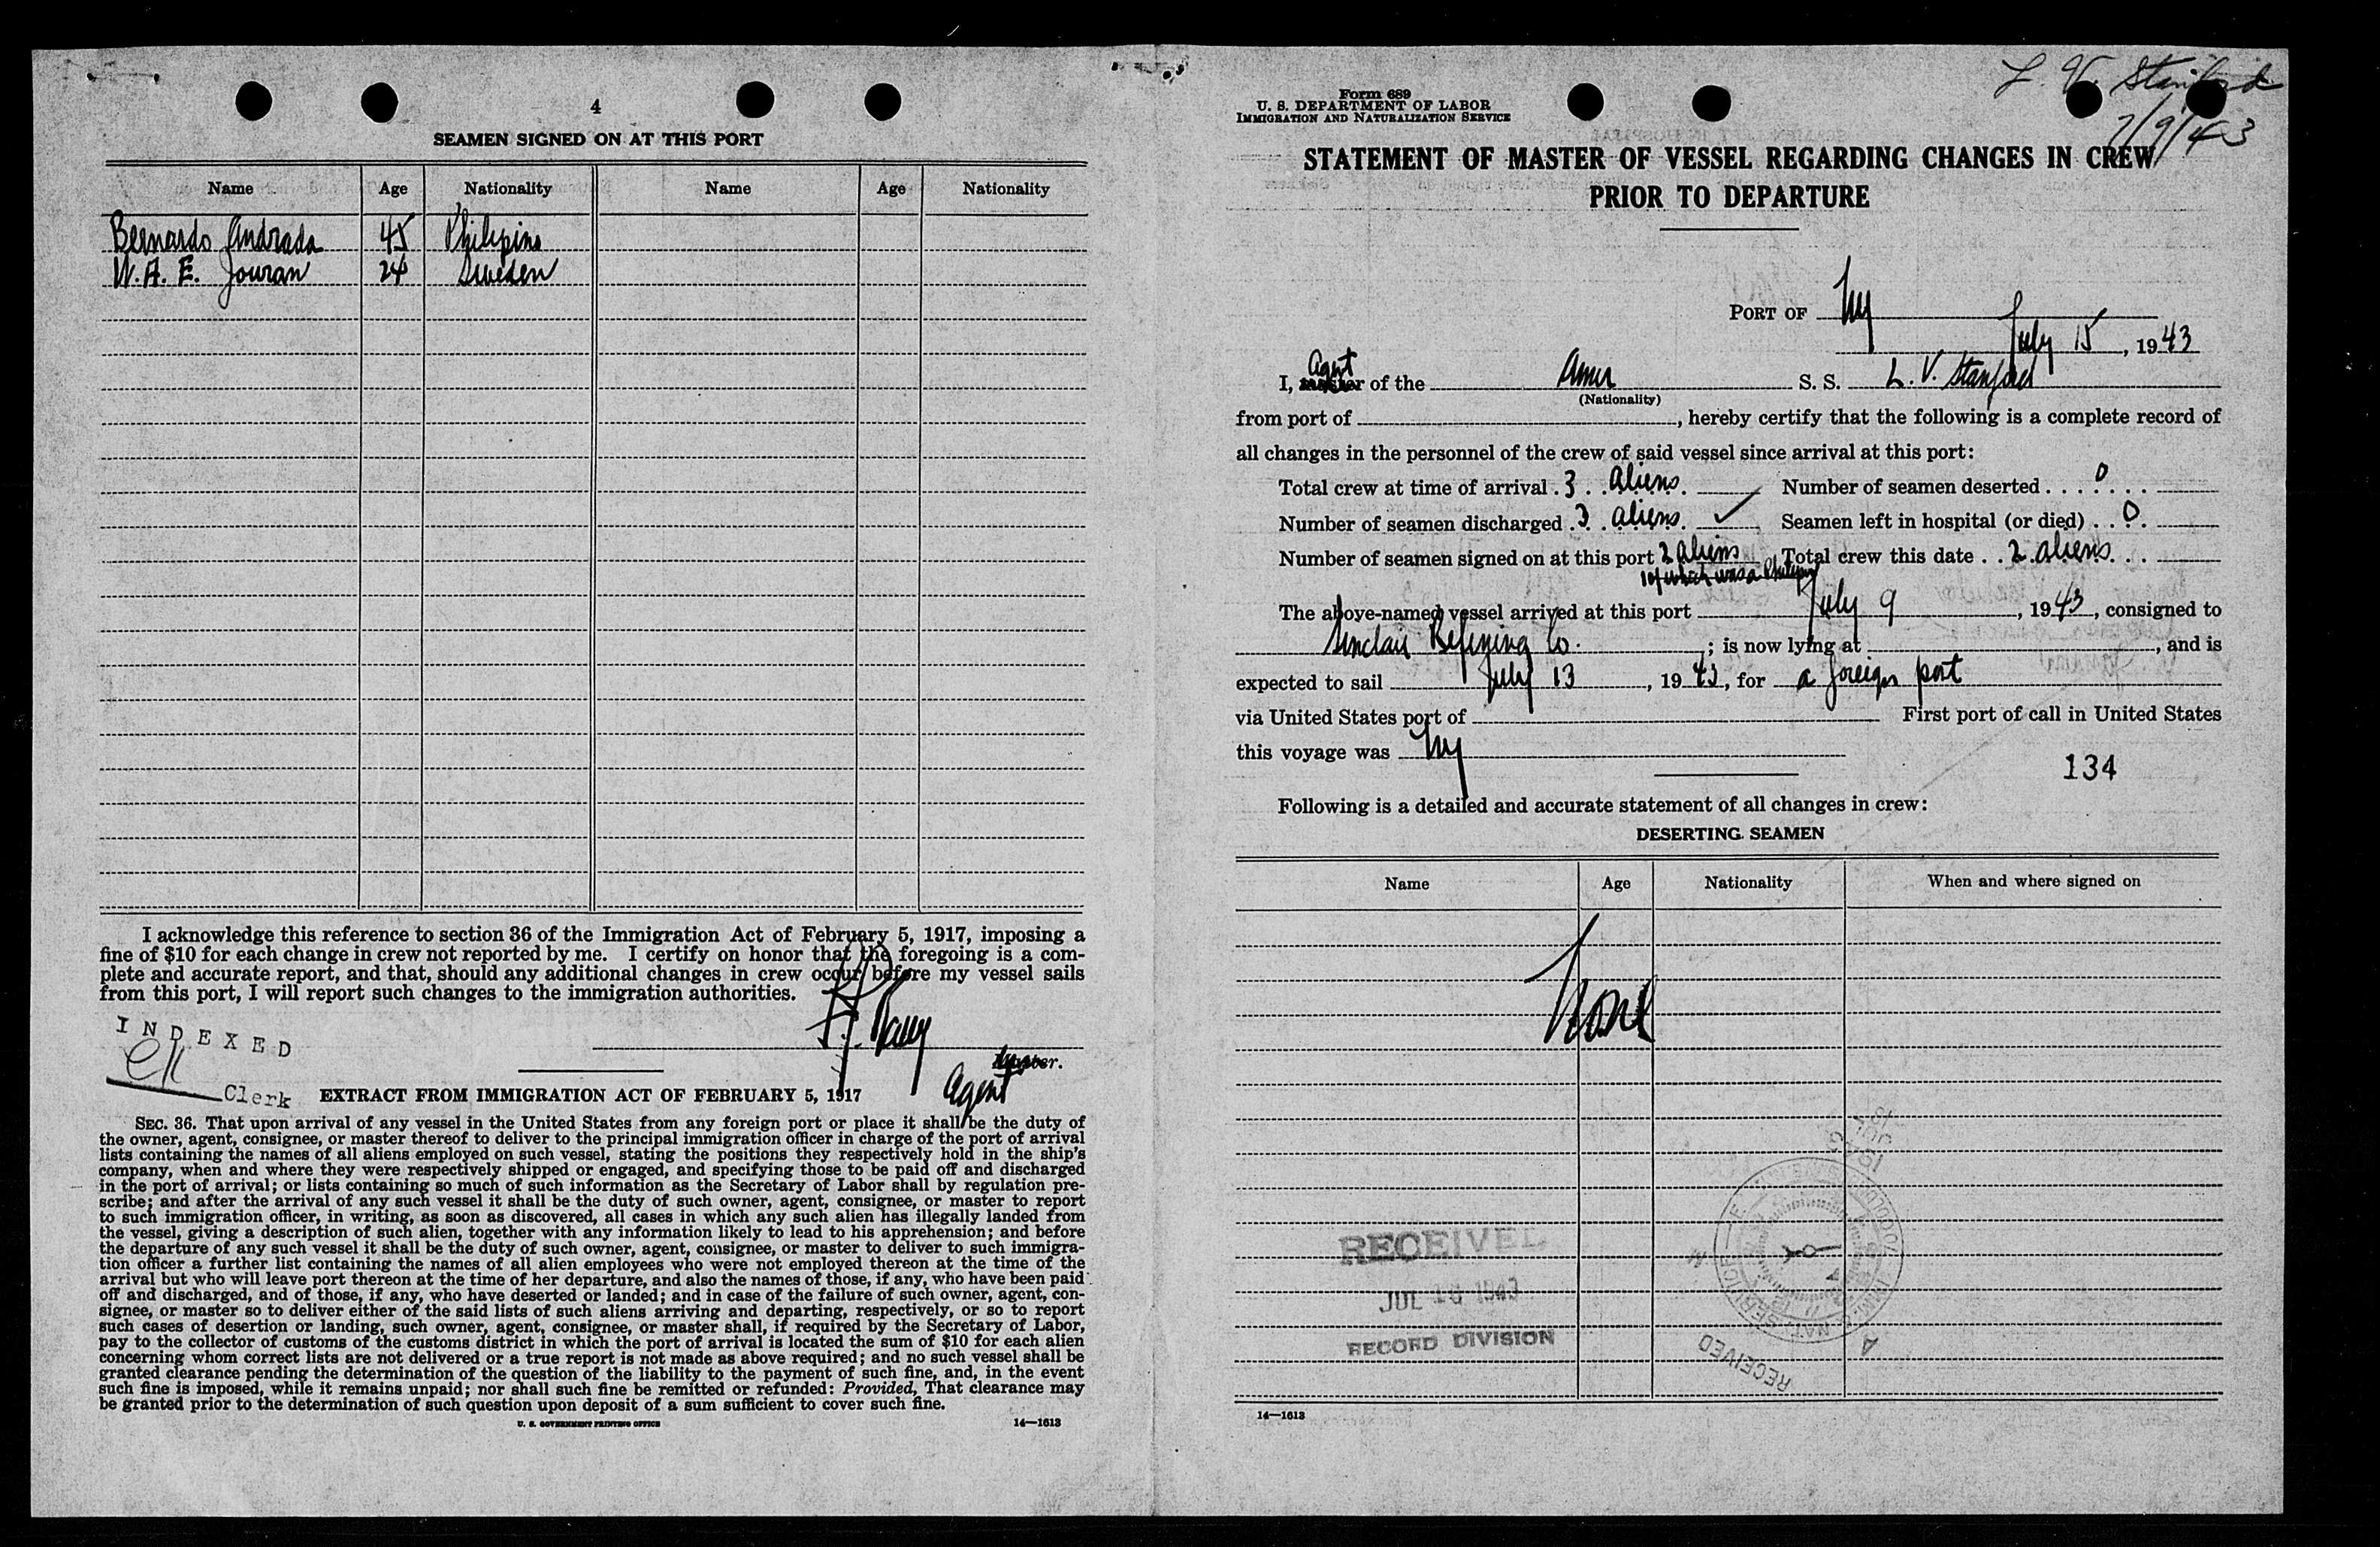 4
SEAMEN SIGNED ON AT THIS PORT
Name Age Nationality Name Age Nationality
Bernardo Andrada 45 Philipino
W. A. E. Jouran 24 Sweden
I acknowledge this reference to section 36 of the Immigration Act of February 5, 1917, imposing a
fine of $10 for each change in crew not reported by me. I certify on honor that the foregoing is a com-
plete and accurate report, and that, should any additional changes in crew occur before my vessel sails
from this port, I will report such changes to the immigration authorities.
INDEXED
Master.
Agent
Clerk
EXTRACT FROM IMMIGRATION ACT OF FEBRUARY 5, 1917
SEC. 36. That upon arrival of any vessel in the United States from any foreign port or place it shall be the duty of
the owner, agent, consignee, or master thereof to deliver to the principal immigration officer in charge of the port of arrival
lists containing the names of all aliens employed on such vessel, stating the positions they respectively hold in the ship's
company, when and where they were respectively shipped or engaged, and specifying those to be paid off and discharged
in the port of arrival; or lists containing so much of such information as the Secretary of Labor shall by regulation pre-
scribe; and after the arrival of any such vessel it shall be the duty of such owner, agent, consignee, or master to report
to such immigration officer, in writing, as soon as discovered, all cases in which any such alien has illegally landed from
the vessel, giving a description of such alien, together with any information likely to lead to his apprehension; and before
the departure of any such vessel it shall be the duty of such owner, agent, consignee, or master to deliver to such immigra-
tion officer a further list containing the names of all alien employees who were not employed thereon at the time of the
arrival but who will leave port thereon at the time of her departure, and also the names of those, if any, who have been paid
off and discharged, and of those, if any, who have deserted or landed; and in case of the failure of such owner, agent, con-
signee, or master so to deliver either of the said lists of such aliens arriving and departing, respectively, or so to report
such cases of desertion or landing, such owner, agent, consignee, or master shall, if required by the Secretary of Labor,
pay to the collector of customs of the customs district in which the port of arrival is located the sum of $10 for each alien
concerning whom correct lists are not delivered or a true report is not made as above required; and no such vessel shall be
granted clearance pending the determination of the question of the liability to the payment of such fine, and, in the event
such fine is imposed, while it remains unpaid; nor shall such fine be remitted or refunded: Provided, That clearance may
be granted prior to the determination of such question upon deposit of a sum sufficient to cover such fine.
U. S. GOVERNMENT PRINTING OFFICE 14—1613
L. V. Stanford
7/9/43
Form 689
U. S. DEPARTMENT OF LABOR
IMMIGRATION AND NATURALIZATION SERVICE
STATEMENT OF MASTER OF VESSEL REGARDING CHANGES IN CREW
PRIOR TO DEPARTURE
PORT OF NY
July 15, 1943
Agent
I, master of the Amer S. S. L. V. Stanford
(Nationality)
from port of , hereby certify that the following is a complete record of
all changes in the personnel of the crew of said vessel since arrival at this port:
Total crew at time of arrival . 3 . . aliens. Number of seamen deserted . . . 0 . . .
Number of seamen discharged . 3 . . aliens. ✓ Seamen left in hospital (or died) . . 0 .
Number of seamen signed on at this port 2 aliens Total crew this date . . 2 aliens . .
1 of which was a Philipino
The above-named vessel arrived at this port July 9, 1943, consigned to
Sinclair Refining Co. ; is now lying at , and is
expected to sail July 13, 1943, for a foreign port
via United States port of First port of call in United States
this voyage was NY
134
Following is a detailed and accurate statement of all changes in crew:
DESERTING SEAMEN
Name Age Nationality When and where signed on
None
RECEIVED
JUL 1943
RECORD DIVISION
RECEIVED
14—1613